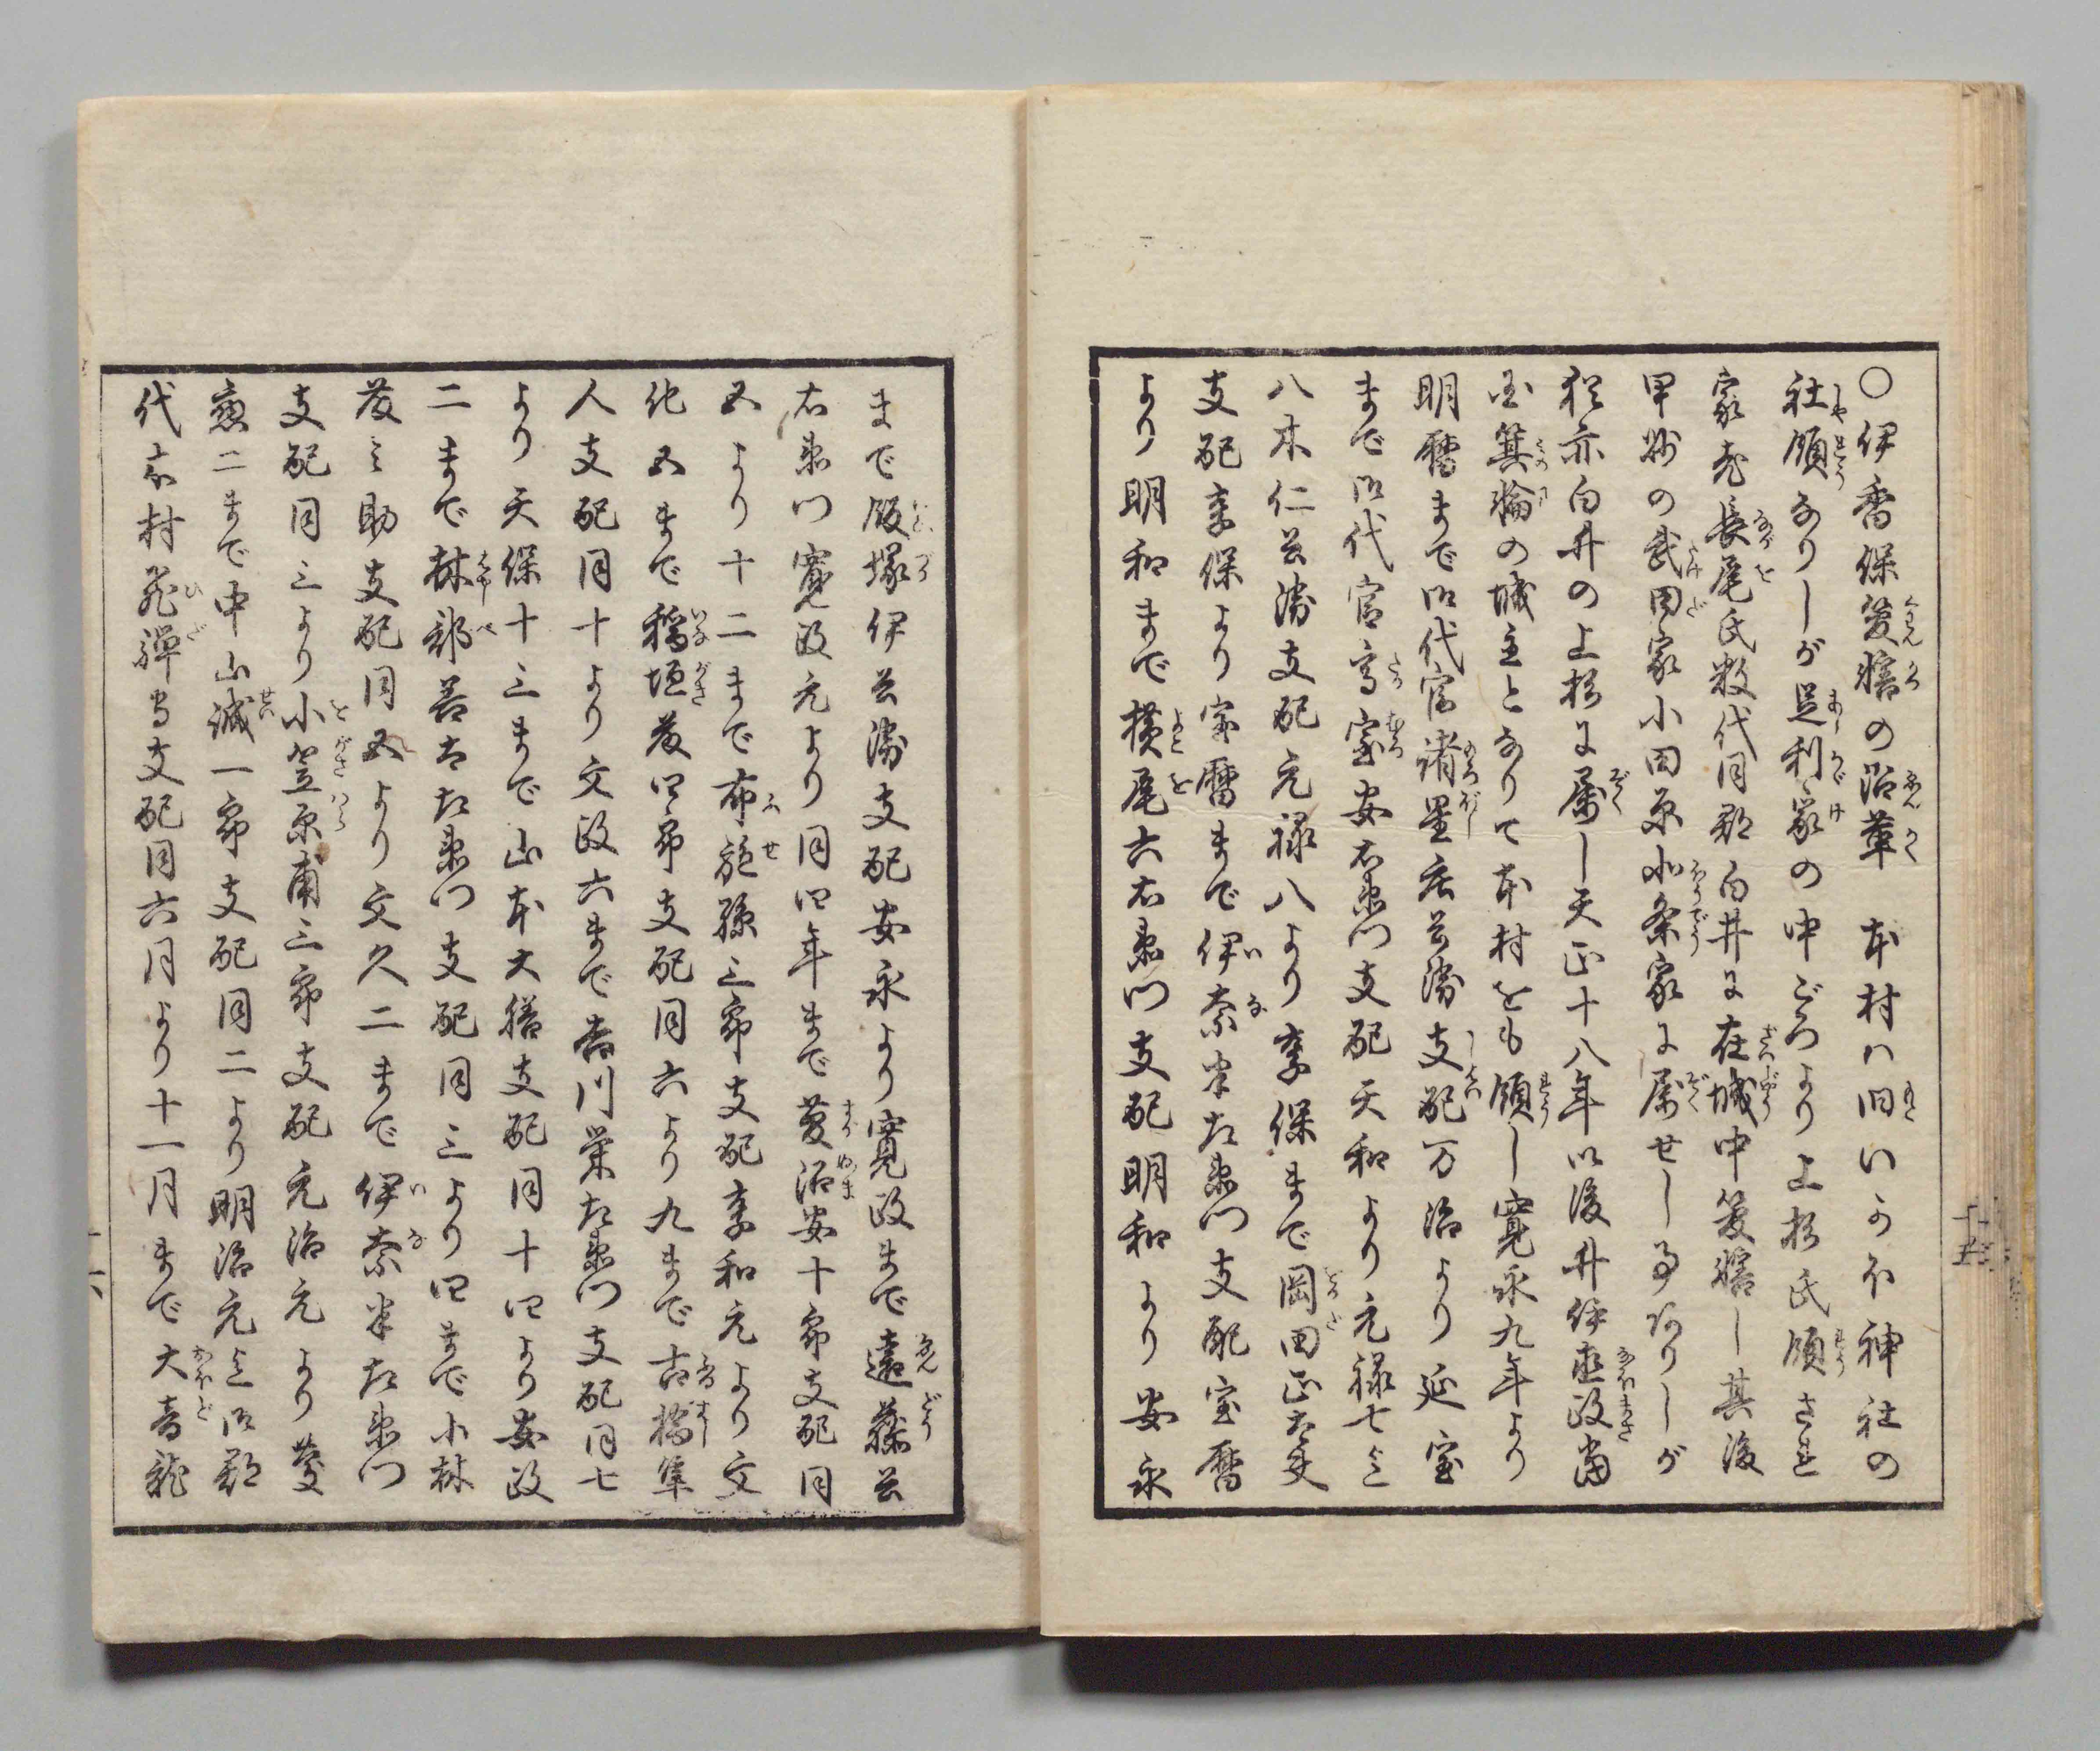 〇伊香保管轄の沿革　本村ハ旧いかほ神社の
社領なりしが足利家の中ごろより上杉氏領され
家老長尾氏数代同郡白井に在城中管轄し其後
甲州の武田家小田原北条家に属せし事ありしが
猶亦白井の上杉に属し天正十八年以後井伊直政当
国箕輪の城主となりて本村をも領し寛永九年より
明暦まで御代官諸星庄兵衛支配万治より延宝
まで御代官高室安右衛門支配天和より元禄七迄
八木仁兵衛支配元禄八より享保まで岡田正太夫
支配享保より宝暦まで伊奈半左衛門支配宝暦
より明和まで横尾六右衛門支配明和より安永
まで飯塚伊兵衛支配安永より寛政まで遠藤兵
右衛門寛政元より同四年まで菱沼安十郎支配同
五より十二まで布施孫三郎支配享和元より文
化五まで稲垣藤四郎支配同六より九まで古橋隼
人支配同十より文政六まで吉川栄左衛門支配同七
より天保十三まで山本大膳支配同十四より安政
二まで林部善太左衛門支配同三より四まで小林
藤之助支配同五より文久二まで伊奈半左衛門
支配同三より小笠原甫三郎支配元治元より慶
應二まで中山誠一郎支配同二より明治元迄御郡
代木村飛騨守支配同六月より十一月まで大音龍
十五
十六